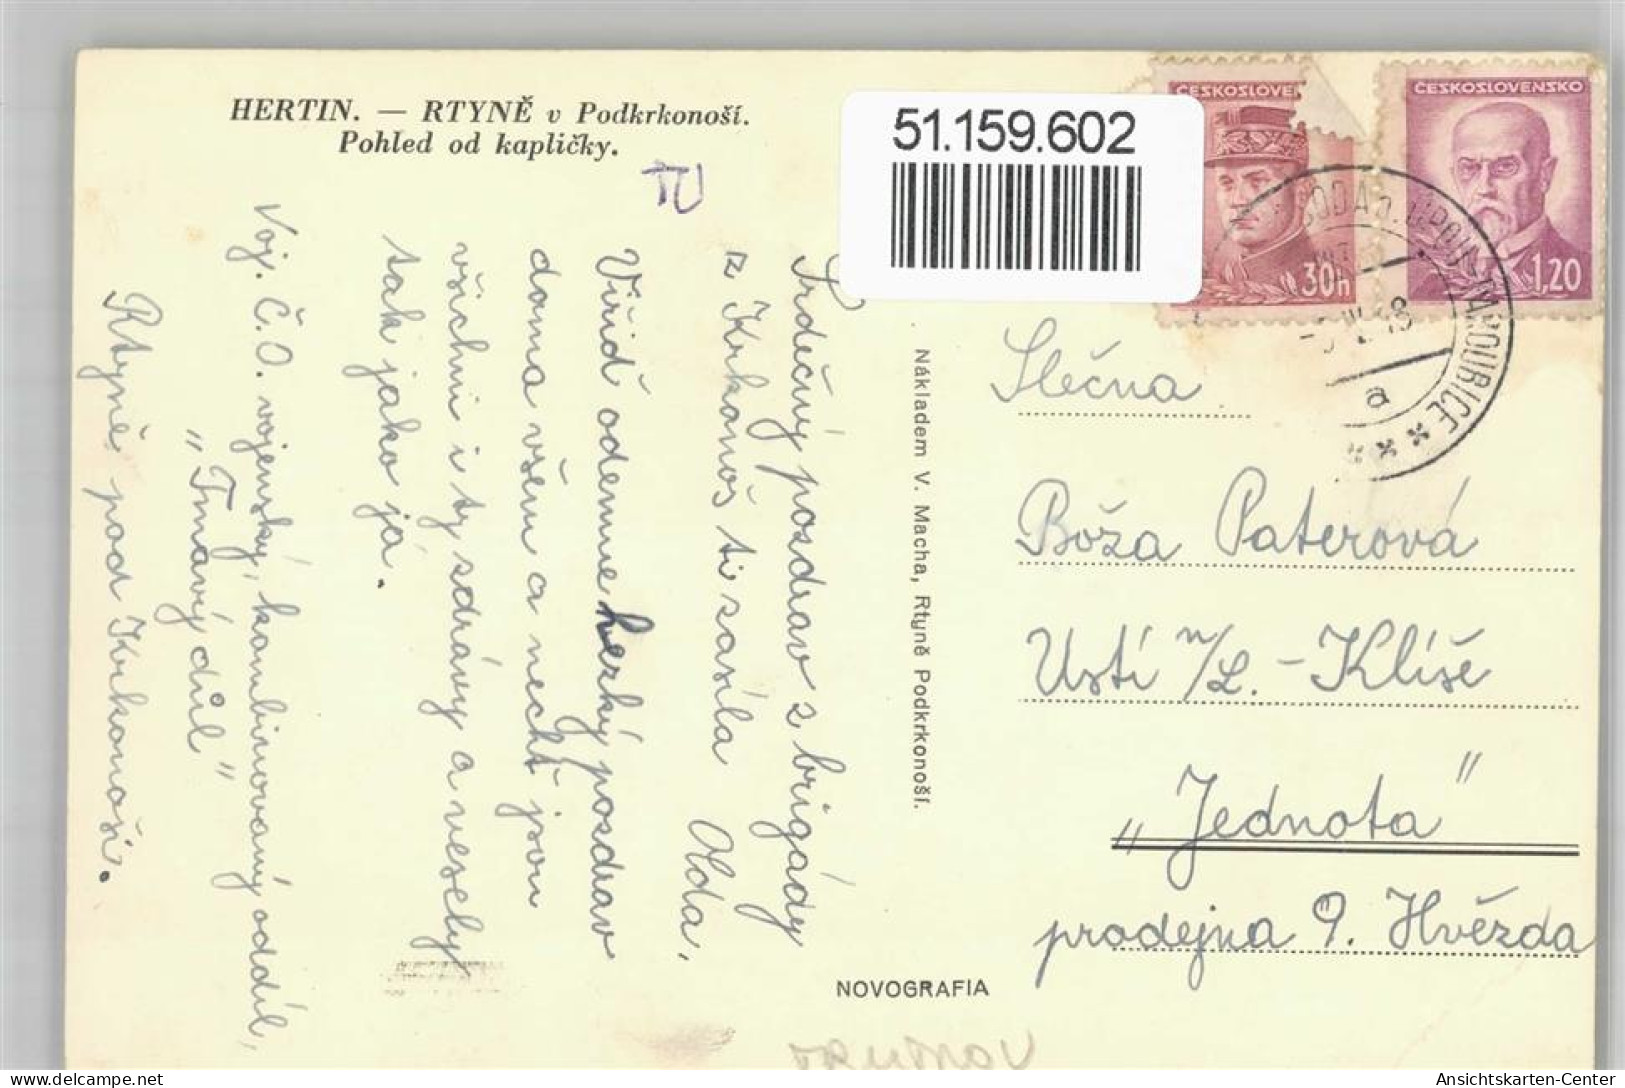 HERTIN. — RTYNĚ v Podkrkonoší.
Pohled od kapličky.
51.159.602
ČESKOSLOVEN
30h
ČESKOSLOVENSKO
1,20
a
Srdečný pozdrav z brigády
z Krkonoš ti zasílá Olda,
Vřiď odemne hezký pozdrav
doma všem a nechť jsou
všichni i ty zdrávy a veselý
tak jako já.
Voj. Č.O. vojenský, kombinovaný oddíl,
„Tmavý důl"
Rtyně, pod Krkonoši.
Nákladem V. Macha, Rtyně Podkrkonoší.
NOVOGRAFIA
Slečna
Bóža Paterová
Ustí n/L. - Klíše
„Jednota"
prodejna 9. Hvězda
Ansichtskarten-Center